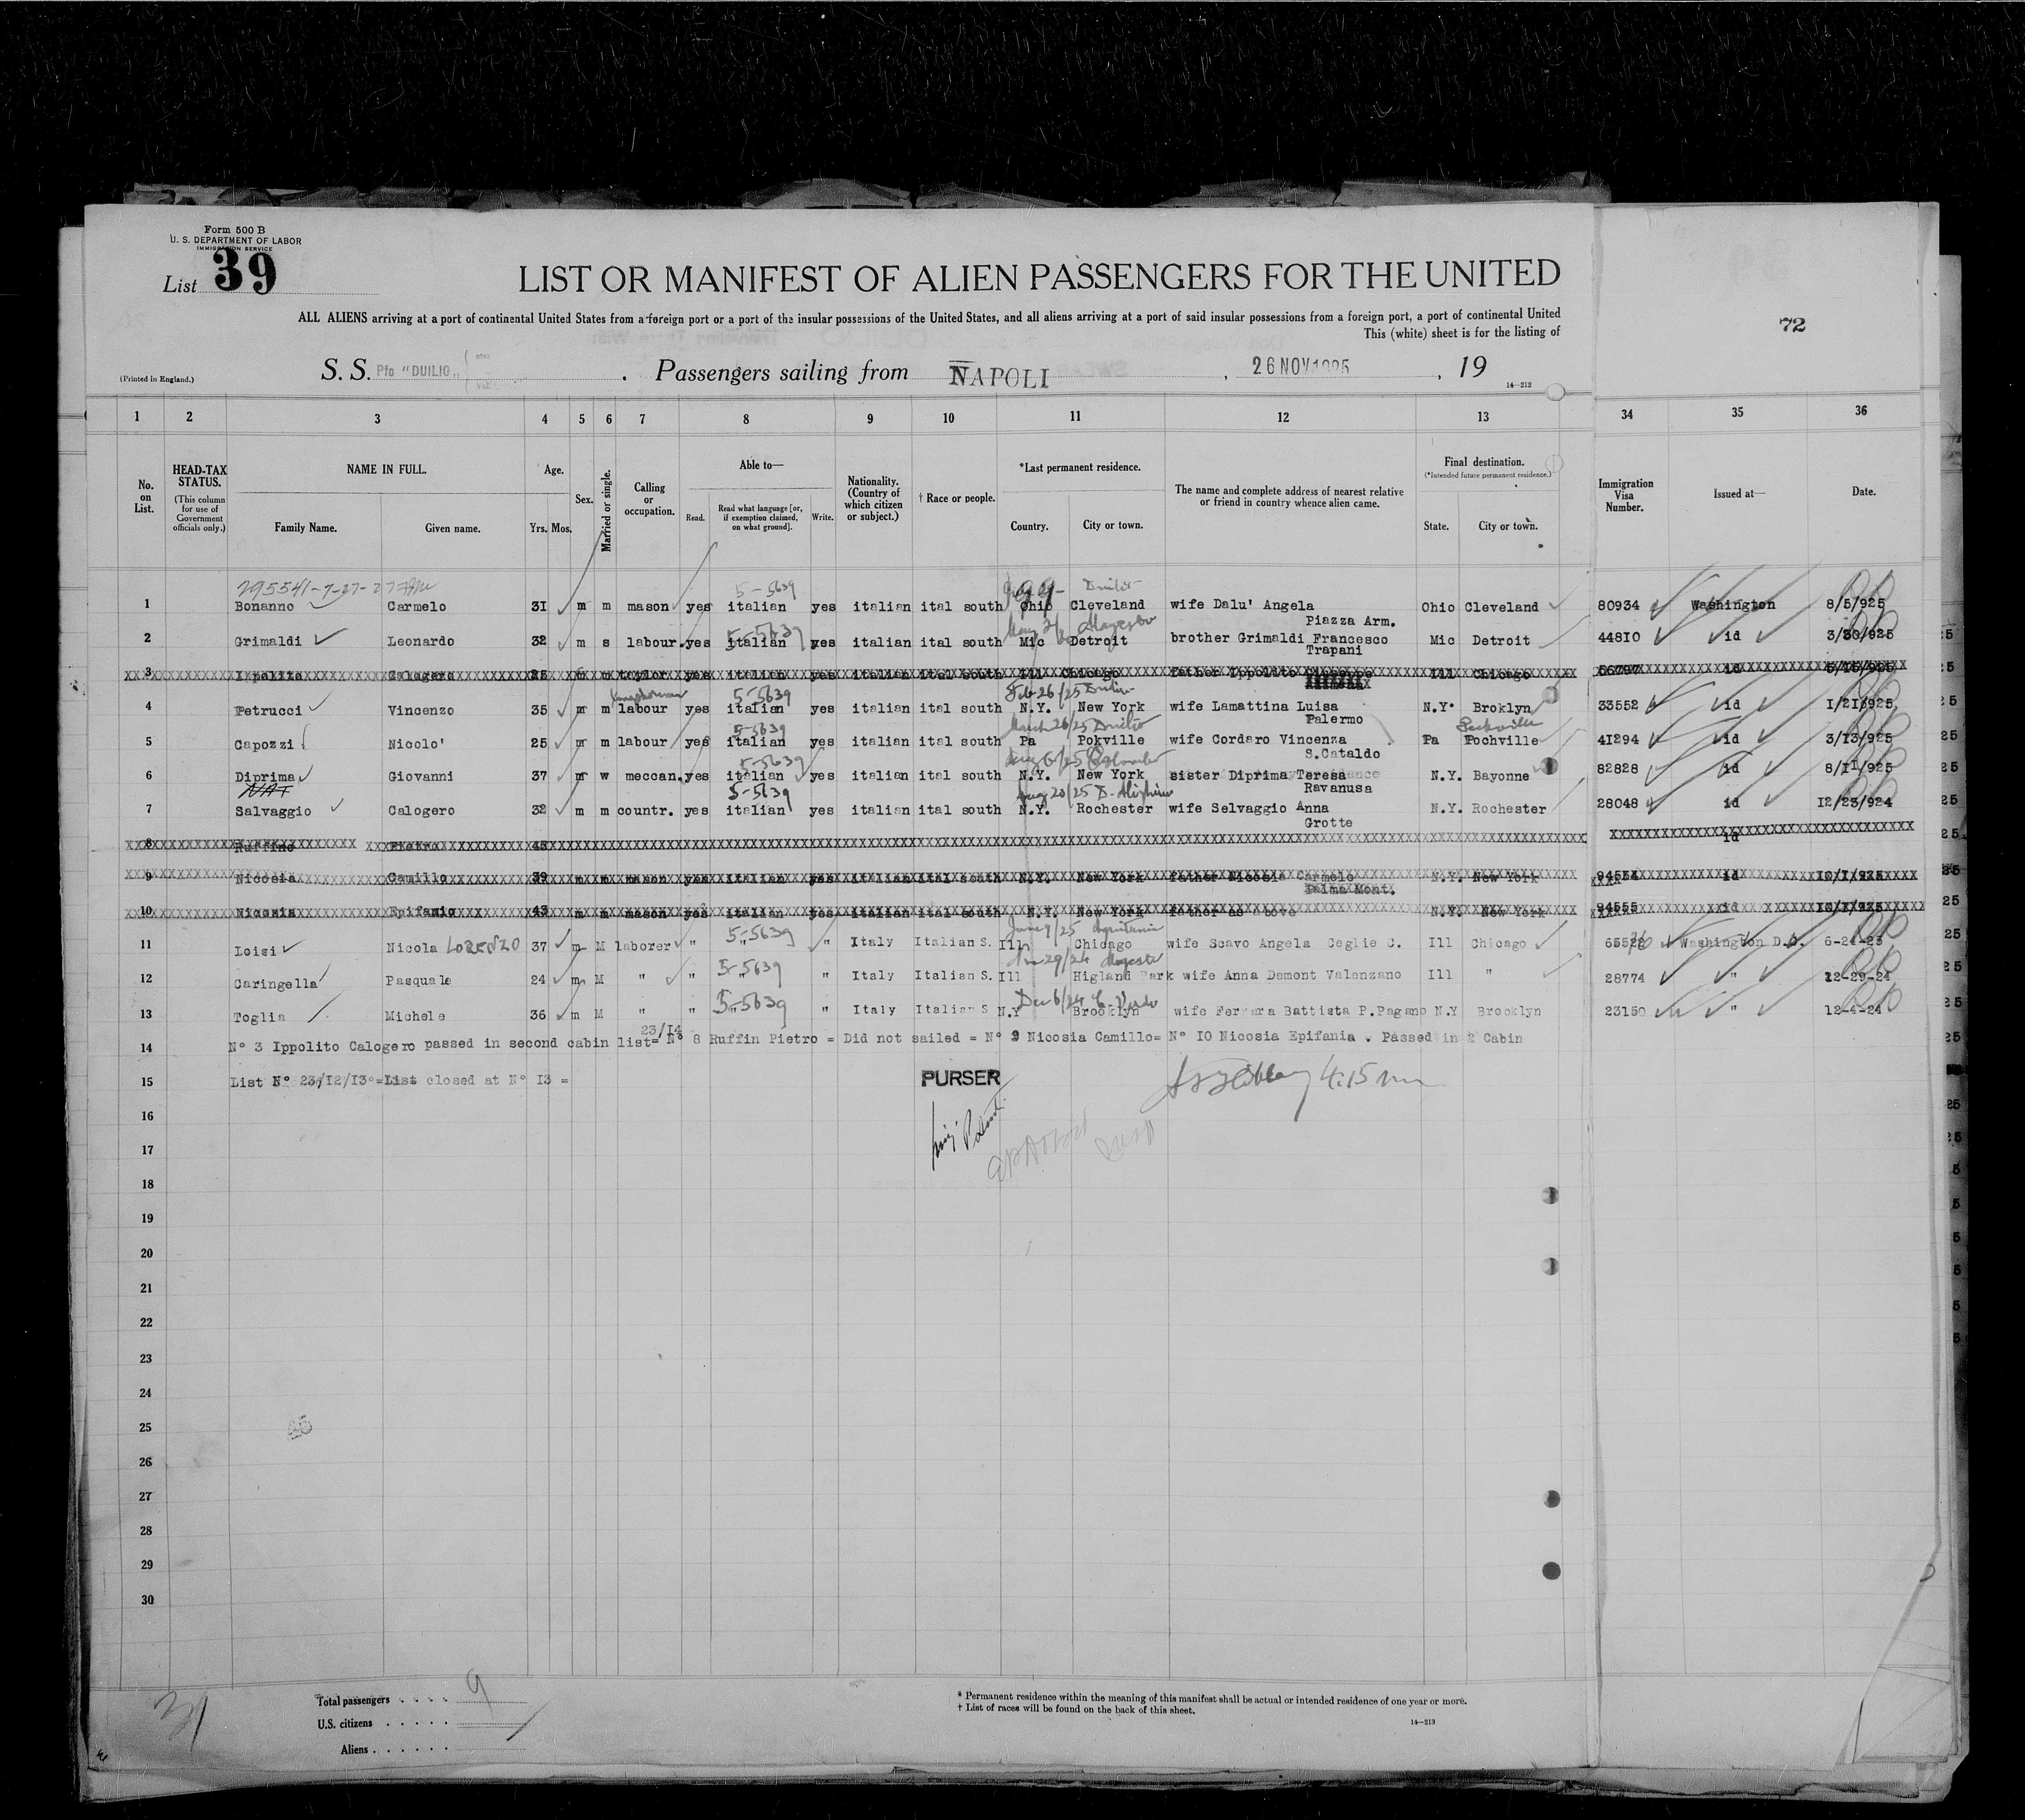 Form 500 B
U. S. DEPARTMENT OF LABOR
IMMIGRATION SERVICE
List 39
LIST OR MANIFEST OF ALIEN PASSENGERS FOR THE UNITED
ALL ALIENS arriving at a port of continental United States from a foreign port or a port of the insular possessions of the United States, and all aliens arriving at a port of said insular possessions from a foreign port, a port of continental United
This (white) sheet is for the listing of
72
(Printed in England.) S. S. Pfo "DUILIO" . Passengers sailing from NAPOLI , 26 NOV 1925 , 19
14—213
1 2 3 4 5 6 7 8 9 10 11 12 13 34 35 36
No. on List.
HEAD-TAX STATUS.
(This column for use of Government officials only.)
NAME IN FULL.
Family Name. Given name.
Age.
Yrs. Mos.
Sex.
Married or single.
Calling or occupation.
Able to—
Read. Read what language [or, if exemption claimed, on what ground]. Write.
Nationality. (Country of which citizen or subject.)
† Race or people.
*Last permanent residence.
Country. City or town.
The name and complete address of nearest relative or friend in country whence alien came.
Final destination.
(*Intended future permanent residence.)
State. City or town.
Immigration Visa Number.
Issued at—
Date.
295541-7-27-27 5-5639 Duilio
1 Bonanno Carmelo 31 m m mason yes italian yes italian ital south Ohio Cleveland wife Dalu' Angela Ohio Cleveland 80934 Washington 8/5/925
Piazza Arm.
5-5639
2 Grimaldi Leonardo 32 m s labour. yes italian yes italian ital south Mic Detroit brother Grimaldi Francesco Mic Detroit 44810 id 3/30/925
Trapani
3 Ippolito Calogero 25 m m taylor yes italian yes italian ital south Ill Chicago father Ippolito Ill Chicago 56797 id 5/15/925
5-5639 Feb 26/25 Duilio
4 Petrucci Vincenzo 35 m m labour yes italian yes italian ital south N.Y. New York wife Lamattina Luisa N.Y. Broklyn 33552 id 1/21/925
Palermo
5-5639 March 26/25 Duilio
5 Capozzi Nicolo' 25 m m labour yes italian yes italian ital south Pa Pokville wife Cordaro Vincenza Pa Pochville 41294 id 3/13/925
S.Cataldo
5-5639
6 Diprima Giovanni 37 m w meccan. yes italian yes italian ital south N.Y. New York sister Diprima Teresa N.Y. Bayonne 82828 id 8/11/925
Ravanusa
NAT 5-5639 Aug 20/25
7 Salvaggio Calogero 32 m m countr. yes italian yes italian ital south N.Y. Rochester wife Selvaggio Anna N.Y. Rochester 28048 id 12/23/924
Grotte
8 Ruffino Pietro 45 id
9 Nicosia Camillo 39 m m mason yes italian yes italian ital south N.Y. New York father Nicosia Carmelo N.Y. New York 94554 id 10/1/925
Palma Mont.
10 Nicosia Epifanio 43 m m mason yes italian yes italian ital south N.Y. New York father as above N.Y. New York 94555 id 10/1/925
5-5639
11 Loisi Nicola LORENZO 37 m M laborer " " " Italy Italian S. Ill Chicago wife Scavo Angela Ceglie C. Ill Chicago Washington D.C. 6-24-25
5-5639
12 Caringella Pasquale 24 m M " " " Italy Italian S. Ill Higland Park wife Anna Demont Valenzano Ill " 28774 " 12-29-24
5-5639
13 Toglia Michele 36 m M " " " " Italy Italian S N.Y Brooklyn wife Ferrara Battista P.Pagano N.Y Brooklyn 23150 " 12-4-24
23/14
14 N° 3 Ippolito Calogero passed in second cabin list= N° 8 Ruffin Pietro = Did not sailed = N° 9 Nicosia Camillo= N° 10 Nicosia Epifania . Passed in 2 Cabin
15 List N° 23/12/13 =List closed at N° 13 =
PURSER
4:15
16
17
18
19
20
21
22
23
24
25
26
27
28
29
30
Total passengers . . . . 9
U.S. citizens . . . . .
Aliens . . . . . .
* Permanent residence within the meaning of this manifest shall be actual or intended residence of one year or more.
† List of races will be found on the back of this sheet.
14—213